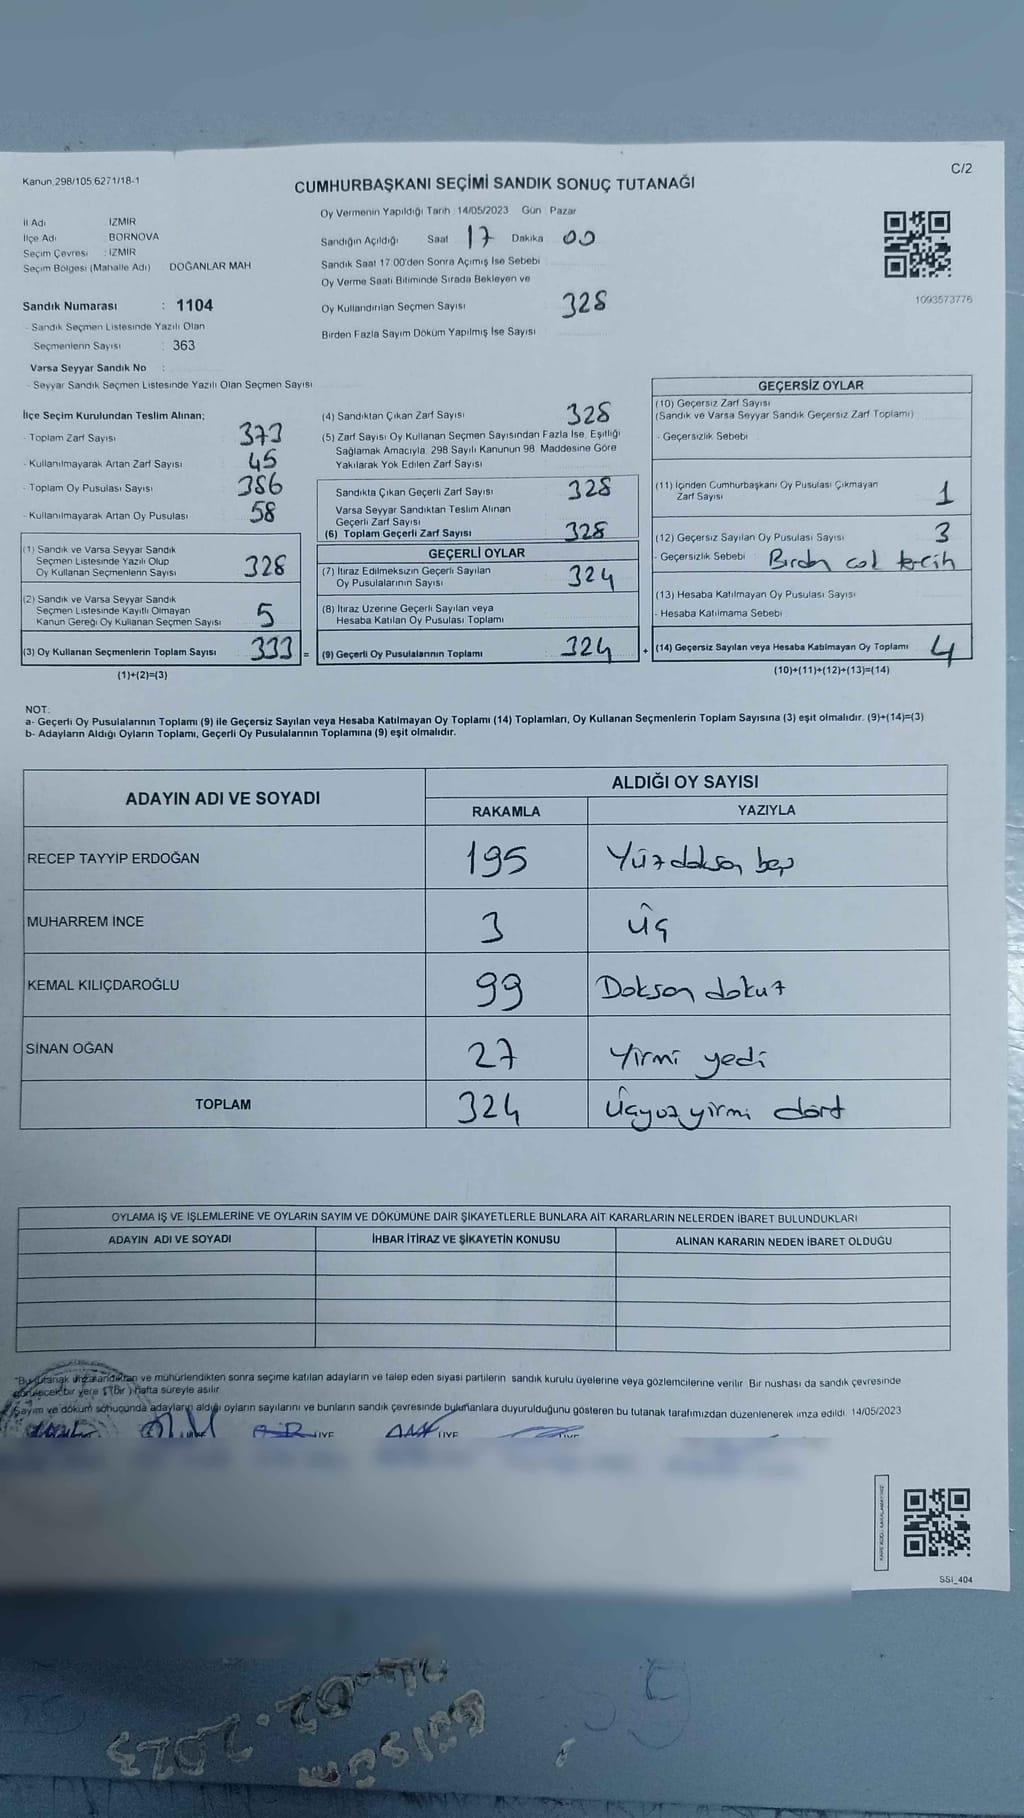 Kanun 298/105 6271/18-1
C/2
CUMHURBAŞKANI SEÇİMİ SANDIK SONUÇ TUTANAĞI
İl Adı : İZMİR
İlçe Adı : BORNOVA
Seçim Çevresi : İZMİR
Seçim Bölgesi (Mahalle Adı) DOĞANLAR MAH
Sandık Numarası : 1104
- Sandık Seçmen Listesinde Yazılı Olan
Seçmenlerin Sayısı : 363
Varsa Seyyar Sandık No :
- Seyyar Sandık Seçmen Listesinde Yazılı Olan Seçmen Sayısı
Oy Vermenin Yapıldığı Tarih 14/05/2023 Gün Pazar
Sandığın Açıldığı Saat 17 Dakika 00
Sandık Saat 17 00'den Sonra Açımış İse Sebebi
Oy Verme Saati Bitiminde Sırada Bekleyen ve
Oy Kullandırılan Seçmen Sayısı 328
Birden Fazla Sayım Döküm Yapılmış İse Sayısı
1093573776
İlçe Seçim Kurulundan Teslim Alınan;
- Toplam Zarf Sayısı 373
- Kullanılmayarak Artan Zarf Sayısı 45
- Toplam Oy Pusulası Sayısı 386
- Kullanılmayarak Artan Oy Pusulası 58
(1) Sandık ve Varsa Seyyar Sandık
Seçmen Listesinde Yazılı Olup
Oy Kullanan Seçmenlerin Sayısı 328
(2) Sandık ve Varsa Seyyar Sandık
Seçmen Listesinde Kayıtlı Olmayan
Kanun Gereği Oy Kullanan Seçmen Sayısı 5
(3) Oy Kullanan Seçmenlerin Toplam Sayısı 333 =
(1)+(2)=(3)
(4) Sandıktan Çıkan Zarf Sayısı 328
(5) Zarf Sayısı Oy Kullanan Seçmen Sayısından Fazla İse, Eşitliği
Sağlamak Amacıyla, 298 Sayılı Kanunun 98. Maddesine Göre
Yakılarak Yok Edilen Zarf Sayısı
Sandıkta Çıkan Geçerli Zarf Sayısı 328
Varsa Seyyar Sandıktan Teslim Alınan
Geçerli Zarf Sayısı
(6) Toplam Geçerli Zarf Sayısı 328
GEÇERLİ OYLAR
(7) İtiraz Edilmeksizin Geçerli Sayılan
Oy Pusulalarının Sayısı 324
(8) İtiraz Üzerine Geçerli Sayılan veya
Hesaba Katılan Oy Pusulası Toplamı
(9) Geçerli Oy Pusulalarının Toplamı 324 +
GEÇERSİZ OYLAR
(10) Geçersiz Zarf Sayısı
(Sandık ve Varsa Seyyar Sandık Geçersiz Zarf Toplamı)
- Geçersizlik Sebebi
(11) İçinden Cumhurbaşkanı Oy Pusulası Çıkmayan
Zarf Sayısı 1
(12) Geçersiz Sayılan Oy Pusulası Sayısı 3
- Geçersizlik Sebebi Birden çok tercih
(13) Hesaba Katılmayan Oy Pusulası Sayısı
- Hesaba Katılmama Sebebi
(14) Geçersiz Sayılan veya Hesaba Katılmayan Oy Toplamı 4
(10)+(11)+(12)+(13)=(14)
NOT:
a- Geçerli Oy Pusulalarının Toplamı (9) ile Geçersiz Sayılan veya Hesaba Katılmayan Oy Toplamı (14) Toplamları, Oy Kullanan Seçmenlerin Toplam Sayısına (3) eşit olmalıdır. (9)+(14)=(3)
b- Adayların Aldığı Oyların Toplamı, Geçerli Oy Pusulalarının Toplamına (9) eşit olmalıdır.
ADAYIN ADI VE SOYADI ALDIĞI OY SAYISI
RAKAMLA YAZIYLA
RECEP TAYYİP ERDOĞAN 195 Yüzdoksan beş
MUHARREM İNCE 3 Üç
KEMAL KILIÇDAROĞLU 99 Doksan dokuz
SİNAN OĞAN 27 Yirmi yedi
TOPLAM 324 Üçyüzyirmi dört
OYLAMA İŞ VE İŞLEMLERİNE VE OYLARIN SAYIM VE DÖKÜMÜNE DAİR ŞİKAYETLERLE BUNLARA AİT KARARLARIN NELERDEN İBARET BULUNDUKLARI
ADAYIN ADI VE SOYADI İHBAR İTİRAZ VE ŞİKAYETİN KONUSU ALINAN KARARIN NEDEN İBARET OLDUĞU
"Bu tutanak imzalandıktan ve mühürlendikten sonra seçime katılan adayların ve talep eden siyasi partilerin sandık kurulu üyelerine veya gözlemcilerine verilir Bir nüshası da sandık çevresinde
görülecek bir yere 1 (bir) hafta süreyle asılır
Sayım ve döküm sonucunda adayların aldığı oyların sayılarını ve bunların sandık çevresinde bulunanlara duyurulduğunu gösteren bu tutanak tarafımızdan düzenlenerek imza edildi. 14/05/2023
SSİ_404
2023